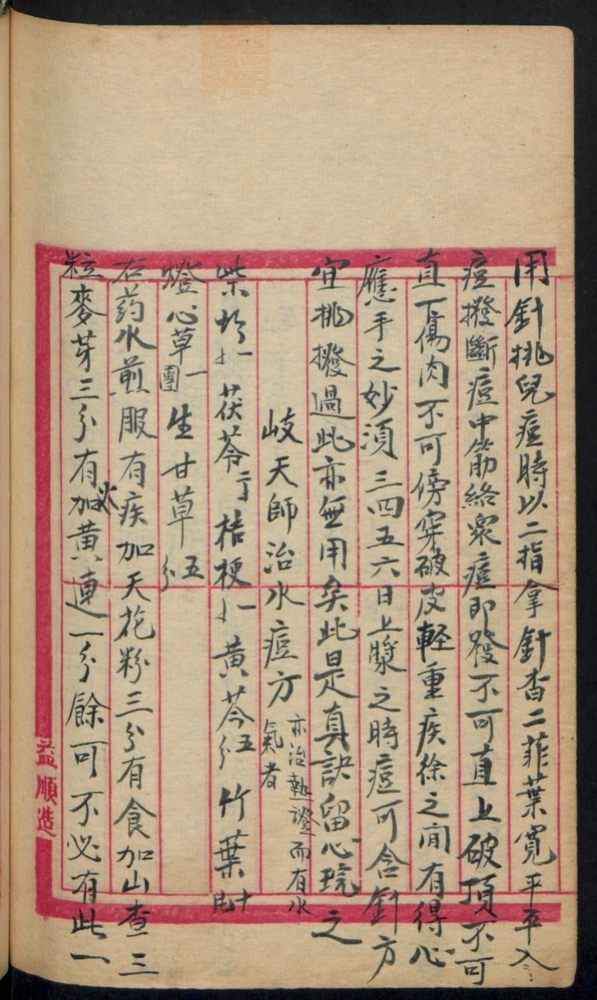 用針挑兒痘時以二指拿針杳二菲葉寬平平入
痘撥斷痘中筋絡衆痘即發不可直上破頂不可
直下傷肉不可傍穿破皮輕重疾徐之间有得心
應手之妙須三四五六日上漿之時痘可舍針方
宜挑撥過此亦無用矣此是真訣留心玩之
岐天師治水痘方 亦治熱證而有水氣者
柴胡一 茯苓 桔梗 黃芩五分 竹葉十片
燈心草一團 生甘草五分
右葯水煎服有疾加天花粉三分有食加山查三
粒麥芽三分有火加黃連一分餘可不必有此一
益順造